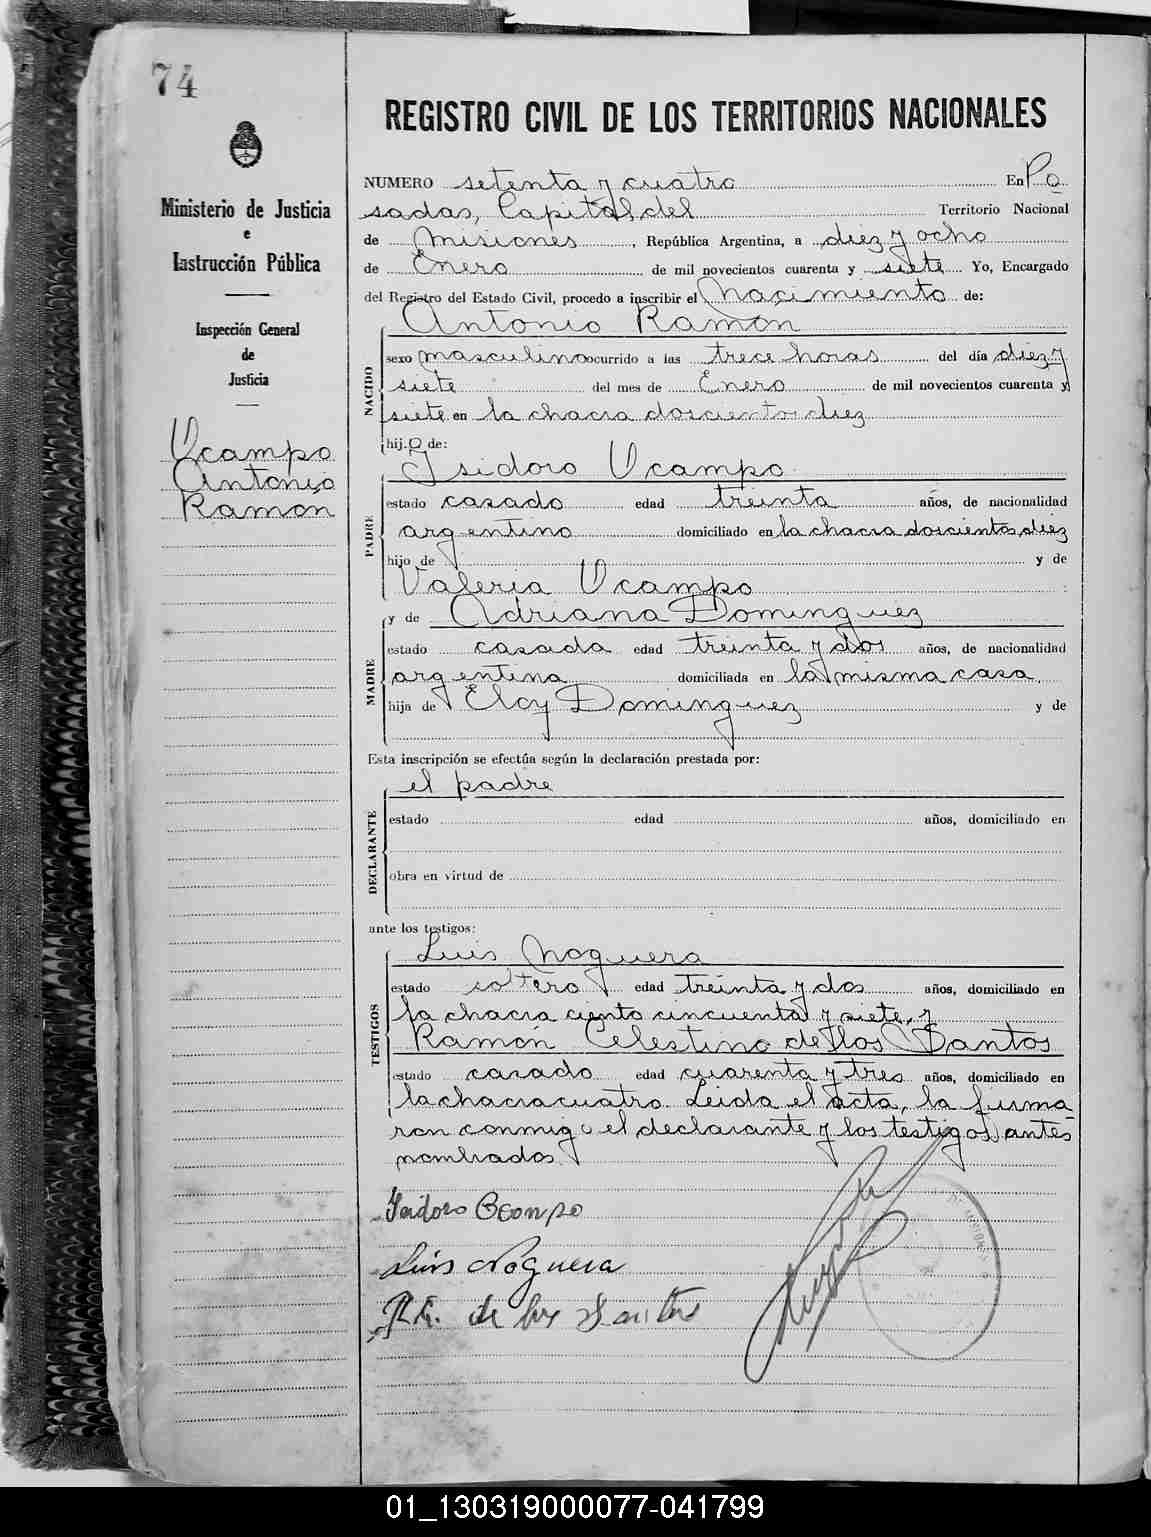 74
Ministerio de Justicia
e
Instrucción Pública
Inspección General
de
Justicia
Ocampo
Antonio
Ramón
REGISTRO CIVIL DE LOS TERRITORIOS NACIONALES
NUMERO setenta y cuatro En Po
sadas, Capital del Territorio Nacional
de Misiones, República Argentina, a diez y ocho
de Enero de mil novecientos cuarenta y siete Yo, Encargado
del Registro del Estado Civil, procedo a inscribir el Nacimiento de:
Antonio Ramón
NACIDO
sexo masculino ocurrido a las trece horas del día diez y
siete del mes de Enero de mil novecientos cuarenta y
siete en la chacra doscientos diez
hijo de:
Isidoro Ocampo
PADRE
estado casado edad treinta años, de nacionalidad
argentino domiciliado en la chacra doscientos diez
hijo de y de
Valeria Ocampo
y de Adriana Dominguez
MADRE
estado casada edad treinta y dos años, de nacionalidad
argentina domiciliada en la misma casa,
hija de Eloy Dominguez y de
Esta inscripción se efectúa según la declaración prestada por:
el padre
DECLARANTE
estado edad años, domiciliado en
obra en virtud de
ante los testigos:
Luis Noguera
TESTIGOS
estado soltero edad treinta y dos años, domiciliado en
la chacra ciento cincuenta y siete, y
Ramón Celestino de los Santos
estado casado edad cuarenta y tres años, domiciliado en
la chacra cuatro. Leida el acta, la firma-
ron conmigo el declarante y los testigos antes
nombrados.
Isidoro Ocampo
Luis Noguera
R. C. de los Santos
01_130319000077-041799